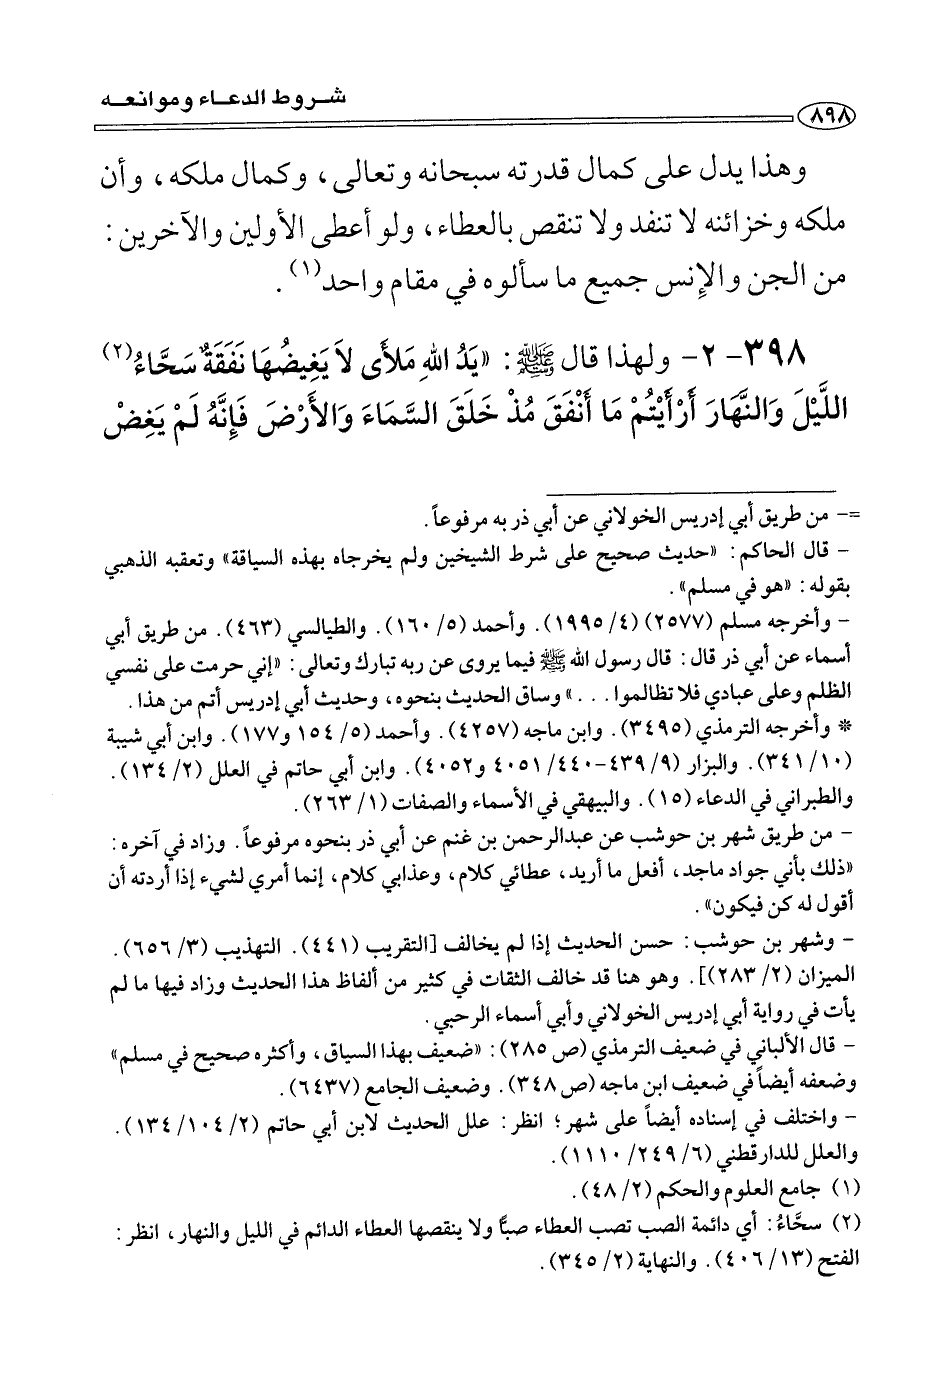 شروط الدعاء وموانعه
٨٩٨
وهذا يدل على كمال قدرته سبحانه وتعالى، وكمال ملكه، وأن
ملكه وخزائنه لا تنفد ولا تنقص بالعطاء، ولو أعطى الأولين والآخرين:
من الجن والإنس جميع ما سألوه في مقام واحد(١).
٣٩٨- ٢- ولهذا قال ﷺ: «يَدُ اللهِ مَلأَى لاَ يَغِيضُهَا نَفَقَةٌ سَحَّاءُ(٢)
اللَّيْلَ وَالنَّهَارَ أَرَأَيْتُمْ مَا أَنْفَقَ مُذْ خَلَقَ السَّمَاءَ وَالأَرْضَ فَإِنَّهُ لَمْ يَغِضْ
=- من طريق أبي إدريس الخولاني عن أبي ذر به مرفوعاً.
- قال الحاكم: «حديث صحيح على شرط الشيخين ولم يخرجاه بهذه السياقة» وتعقبه الذهبي
بقوله: «هو في مسلم».
- وأخرجه مسلم (٢٥٧٧) (٤/ ١٩٩٥). وأحمد (٥/ ١٦٠). والطيالسي (٤٦٣). من طريق أبي
أسماء عن أبي ذر قال: قال رسول الله ﷺ فيما يروى عن ربه تبارك وتعالى: «إني حرمت على نفسي
الظلم وعلى عبادي فلا تظالموا . . .» وساق الحديث بنحوه، وحديث أبي إدريس أتم من هذا.
* وأخرجه الترمذي (٣٤٩٥). وابن ماجه (٤٢٥٧). وأحمد (٥/ ١٥٤ و١٧٧). وابن أبي شيبة
(١٠/ ٣٤١). والبزار (٩/ ٤٣٩-٤٤٠/ ٤٠٥١ و٤٠٥٢). وابن أبي حاتم في العلل (٢/ ١٣٤).
والطبراني في الدعاء (١٥). والبيهقي في الأسماء والصفات (١/ ٢٦٣).
- من طريق شهر بن حوشب عن عبدالرحمن بن غنم عن أبي ذر بنحوه مرفوعاً. وزاد في آخره:
«ذلك بأني جواد ماجد، أفعل ما أريد، عطائي كلام، وعذابي كلام، إنما أمري لشيء إذا أردته أن
أقول له كن فيكون».
- وشهر بن حوشب: حسن الحديث إذا لم يخالف [التقريب (٤٤١). التهذيب (٣/ ٦٥٦).
الميزان (٢/ ٢٨٣)]. وهو هنا قد خالف الثقات في كثير من ألفاظ هذا الحديث وزاد فيها ما لم
يأت في رواية أبي إدريس الخولاني وأبي أسماء الرحبي.
- قال الألباني في ضعيف الترمذي (ص ٢٨٥): «ضعيف بهذا السياق، وأكثره صحيح في مسلم»
وضعفه أيضاً في ضعيف ابن ماجه (ص ٣٤٨). وضعيف الجامع (٦٤٣٧).
- واختلف في إسناده أيضاً على شهر؛ انظر: علل الحديث لابن أبي حاتم (٢/ ١٠٤/ ١٣٤).
والعلل للدارقطني (٦/ ٢٤٩/ ١١١٠).
(١) جامع العلوم والحكم (٢/ ٤٨).
(٢) سحَّاءُ: أي دائمة الصب تصب العطاء صبًّا ولا ينقصها العطاء الدائم في الليل والنهار، انظر:
الفتح (١٣/ ٤٠٦). والنهاية (٢/ ٣٤٥).